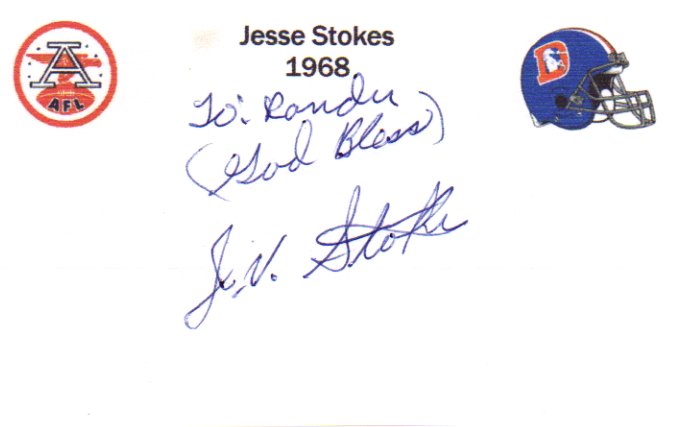 Jesse Stokes
1968
A
AFL
D
To: Randy
(God Bless)
J.V. Stokes